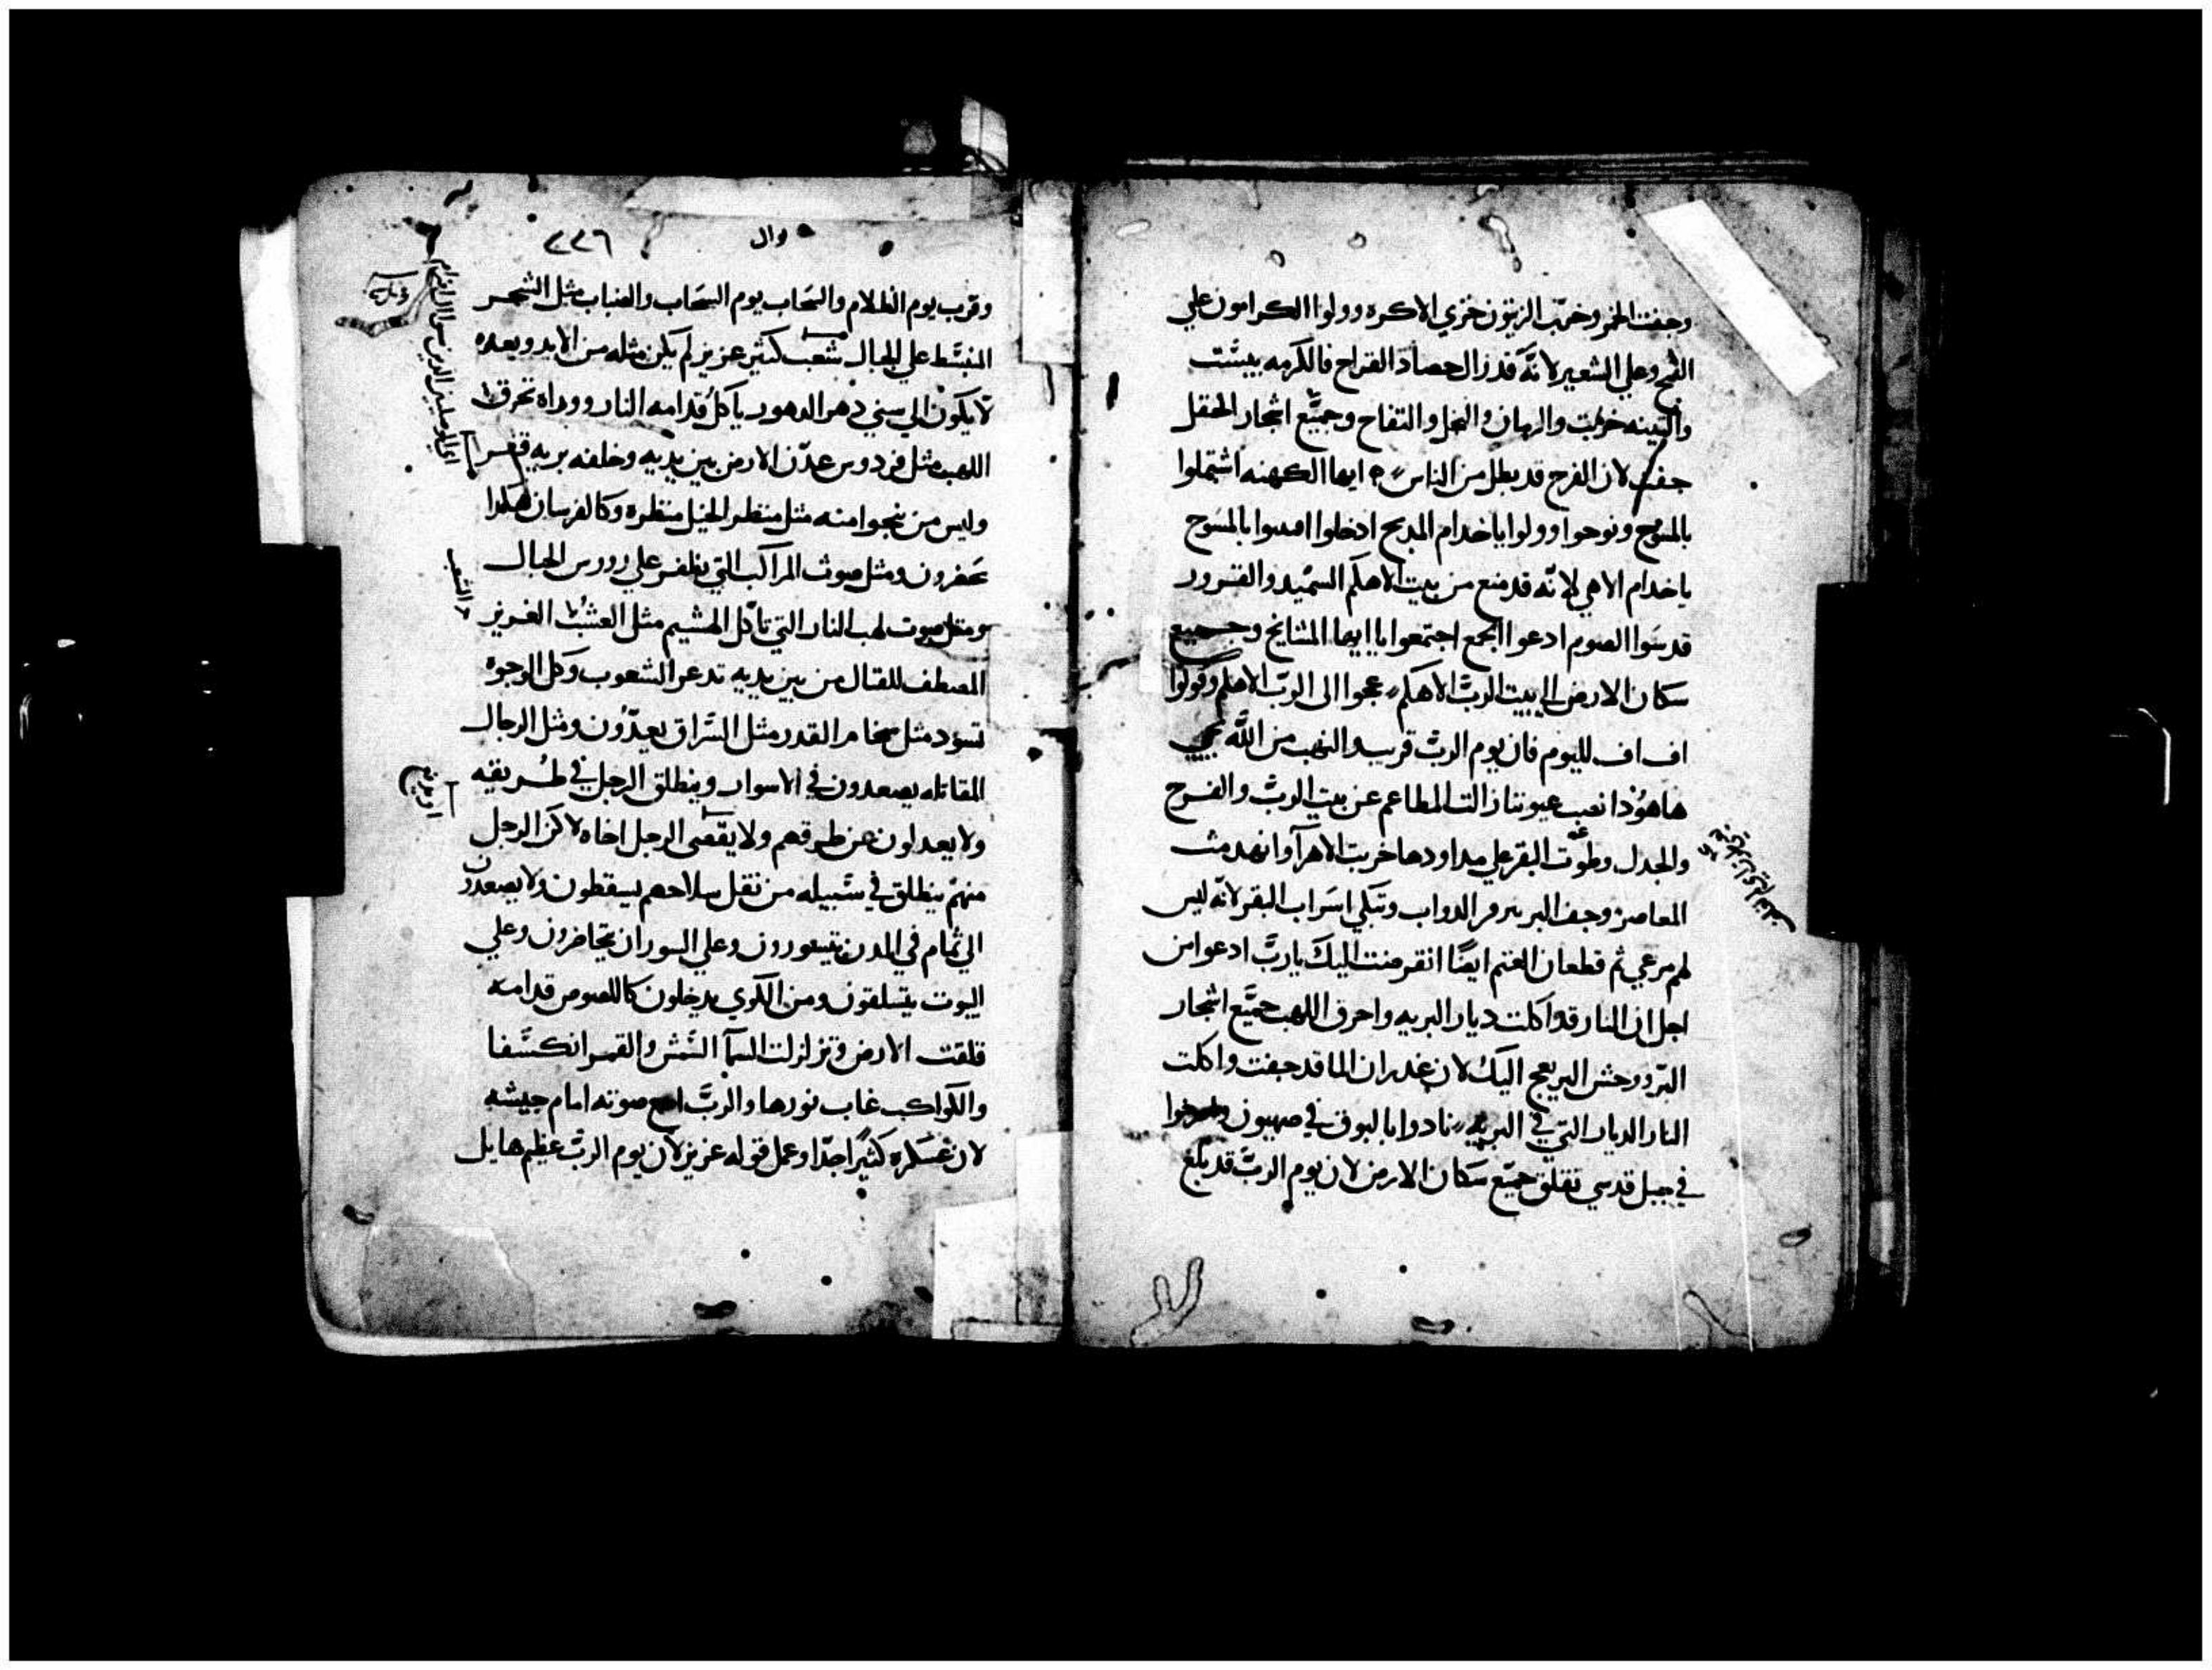 وجفت الخمر وخرب الزيتون خزي الاكره وولوا الكرامون علي
القمح وعلي الشعير لانه قد زال حصاد القراح فالكرمه يبست
والتينه خربت والرمان والنخل والتفاح وجميع اشجار الحقل
جفت لان الفرح قد بطل من الناس ايها الكهنه اشتملوا
بالمسوح ونوحوا وولوا ياخدام المدبح ادخلوا امسوا بالمسوح
ياخدام الاهي لانه قد منع من بيت الاهكم السميد والقرور
قدسوا الصوم ادعوا الجمع اجتمعوا ياايها المشايخ وجميع
سكان الارض الي بيت الرب الاهكم عجوا الى الرب الاهكم وقولوا
اف اف لليوم فان يوم الرب قريب والنهب من الله يجي
هاهوذا نصب عيوننا زالت المطاعم عن بيت الرب والفرح
والجدل وطوت البقر علي مداودها خربت الاهرآ وانهدمت
المعاصر وجف البر الدواب وتبكي اسراب البقر لانه ليس
لهم مرعي ثم قطعان الغنم ايضا انقرضت اليك يارب ادعوا من
اجل ان النار قد اكلت ديار البريه واحرق اللهب جميع اشجار
البر ووحش البر يعج اليك لان غدران الما قد جفت واكلت
النار الديار التي في البريه نادوا بالبوق في صهيون
في جبل قدسي تقلق جميع سكان الارض لان يوم الرب قد بلغ
٢٢٦
وال
وقرب يوم الظلام والسحاب يوم السحاب والضباب مثل الشجر
المنبسط علي الجبال شعب كثير عزيز لم يكن مثله من الابد وبعده
لا يكون الي سني دهر الدهور ياكل قدامه النار ووراه تحرق
اللهب مثل فردوس عدن الارض بين يديه وخلفه بريه قفر
وليس من ينجوا منه مثل منظر الخيل منظره وكالفرسان هكدا
يحضرون ومثل صوت المراكب التي يظفر علي رووس الجبال
ومثل صوت لهب النار التي تاكل الهشيم مثل العشب الغزير
المصطف للقتال من بين يديه تدعر الشعوب وكل الوجوه
تسود مثل سخام القدر مثل السراق يعدون ومثل الرجال
المقاتله يصعدون في الاسوار وينطلق الرجل في طريقه
ولا يعدلون عن طرقهم ولا يقصى الرجل اخاه لاكن الرجل
منهم ينطلق في سبيله من تقل سلاحهم يسقطون ولا يصعدون
الي تمام في المدن يتسورون وعلي السوران يحاضرون وعلي
البيوت يتسلقون ومن الكوي يدخلون كاللصوص قدامه
قلقت الارض وتزلزلت السمآ الشمس والقمر انكسفا
والكواكب غاب نورها والرب اسمع صوته امام جيشه
لان عسكره كثيرا جدا وعمل قوله عزيز لان يوم الرب عظيم هايل
والشعب